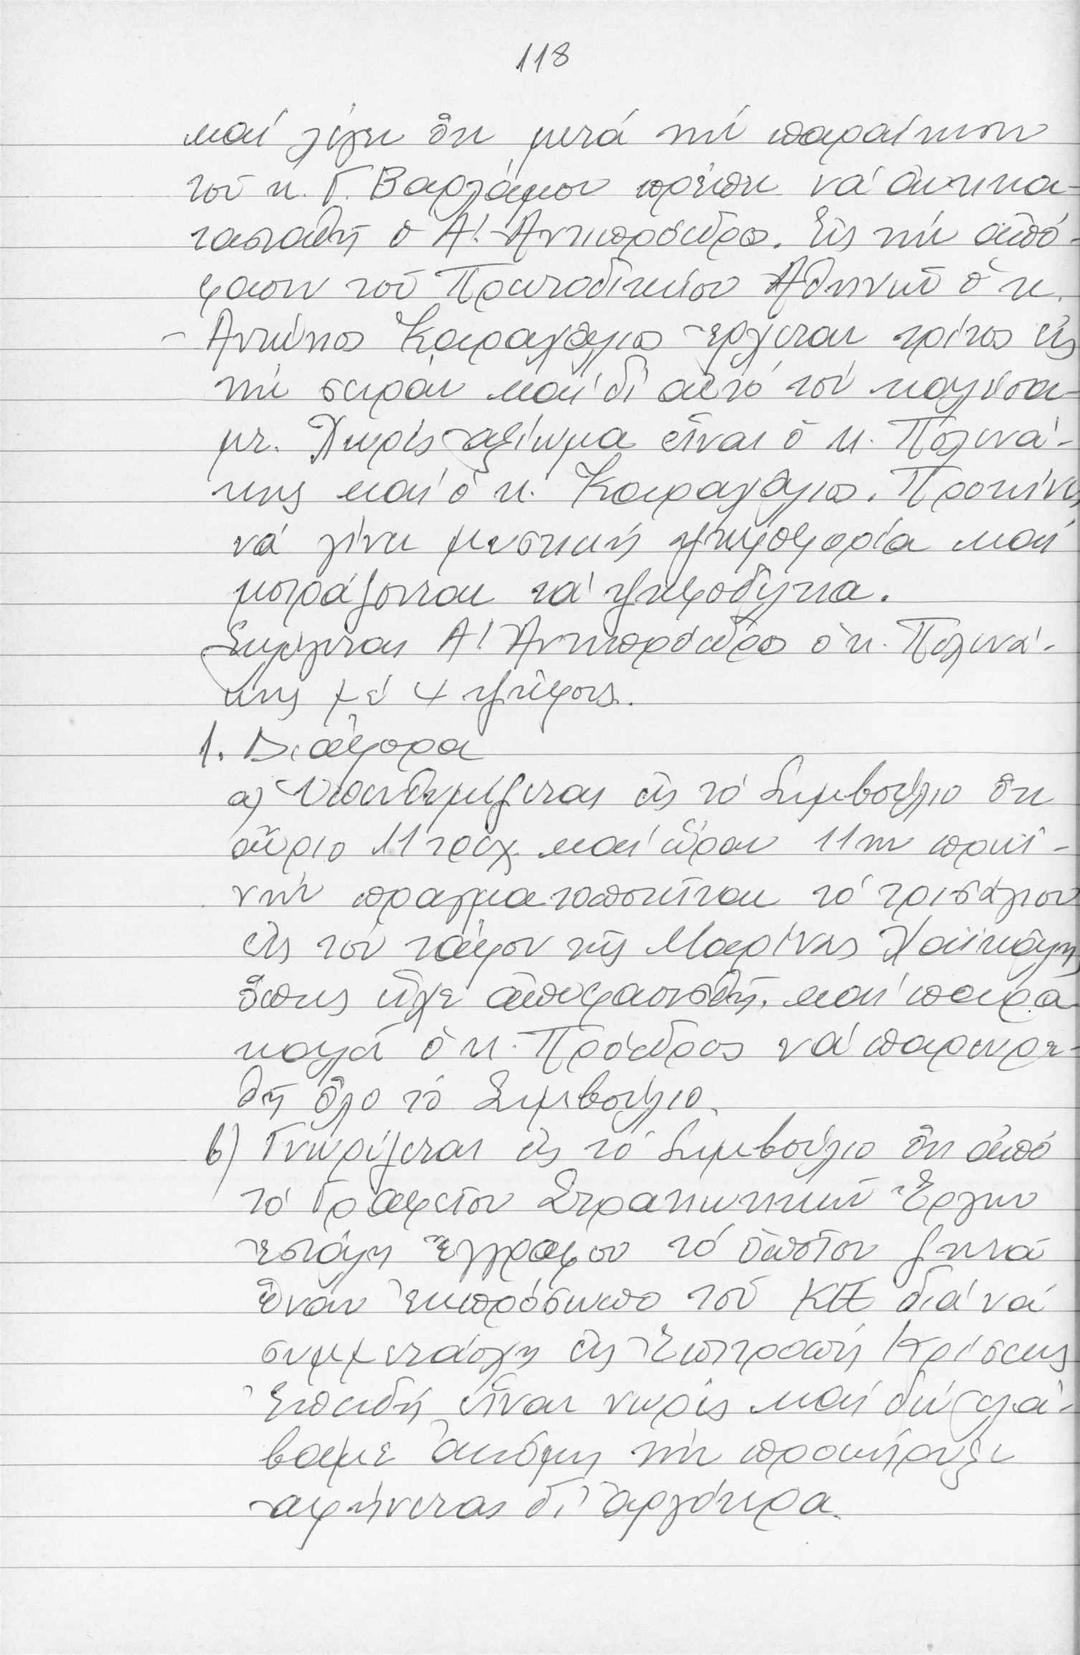 118
καί λέγει ὅτι μετά τήν παραίτησιν
τοῦ κ. Γ. Βαρλάμου πρέπει νά ἀντικα-
τασταθῆ ὁ Α! Ἀντιπρόεδρος. Εἰς τήν ἀπό-
φασιν τοῦ Πρωτοδικείου Ἀθηνῶν ὁ κ.
- Ἀντώνιος Καραγάλιος ἔρχεται τρίτος εἰς
τήν σειράν καί δι' αὐτό τόν καλέσα-
με. Χωρίς ἀξίωμα εἶναι ὁ κ. Πολυνά-
κης καί ὁ κ. Καραγάλιος. Προτείνει
νά γίνει μυστική ψηφοφορία καί
μοιράζονται τά ψηφοδέλτια.
Ἐκλέγεται Α! Ἀντιπρόεδρος ὁ κ. Πολυνά-
κης μέ 4 ψήφους.
1. Διάφορα
α) Ὑπενθυμίζεται εἰς τό Συμβούλιο ὅτι
αὔριο 11 τρέχ. καί ὥραν 11ην πρωϊ-
νήν πραγματοποιεῖται τό τρισάγιον
εἰς τόν τάφον τῆς Μαρίνας Χαϊκάλη
ὅπως εἶχε ἀποφασισθῆ, καί παρα
καλεῖ ὁ κ. Πρόεδρος νά παρευρε-
θῆ ὅλο τό Συμβούλιο.
β) Γνωρίζεται εἰς τό Συμβούλιο ὅτι ἀπό
τό Γραφεῖον Στρατιωτικῶν Ἔργων
ἐστάλη ἔγγραφον τό ὁποῖον ζητᾶ
ἕναν ἐκπρόσωπο τοῦ ΚΕΕ διά νά
συμμετάσχη εἰς Ἐπιτροπή Κρίσεως
Ἐπειδή εἶναι νωρίς καί δέν ἐλά-
βαμε ἀκόμη τήν προκήρυξι
ἀφήνεται δι' ἀργότερα.